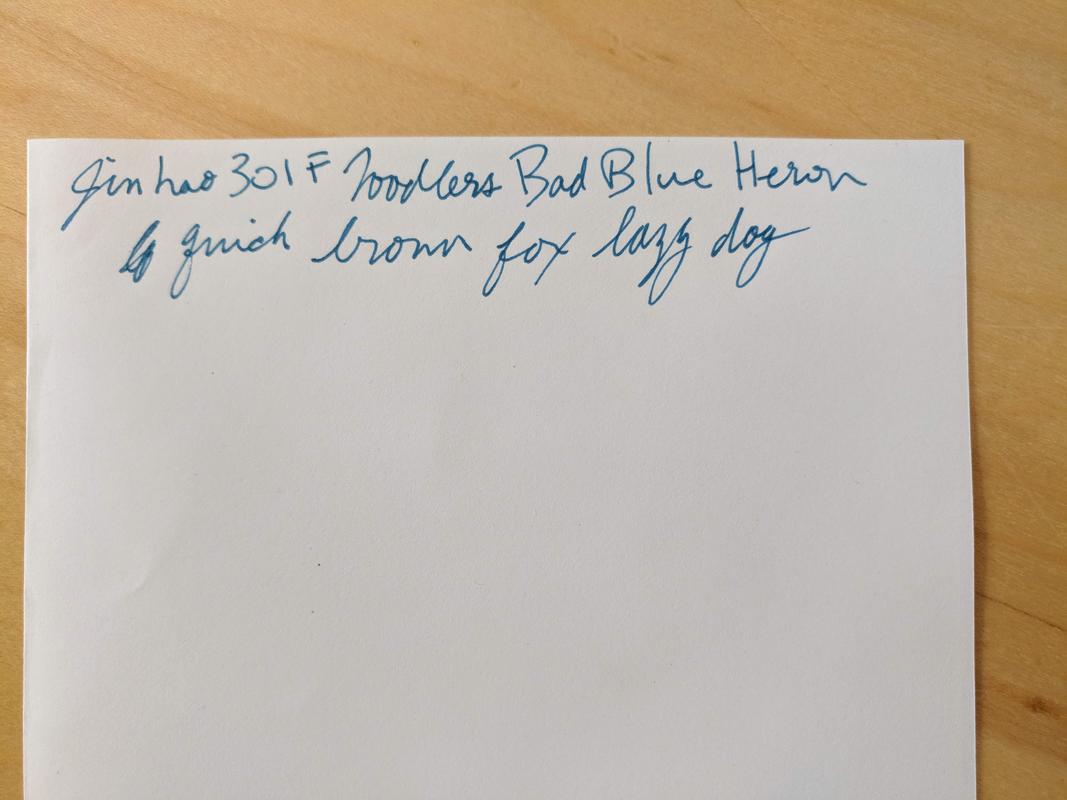 Jinhao 301 F Noodlers Bad Blue Heron
quick brown fox lazy dog